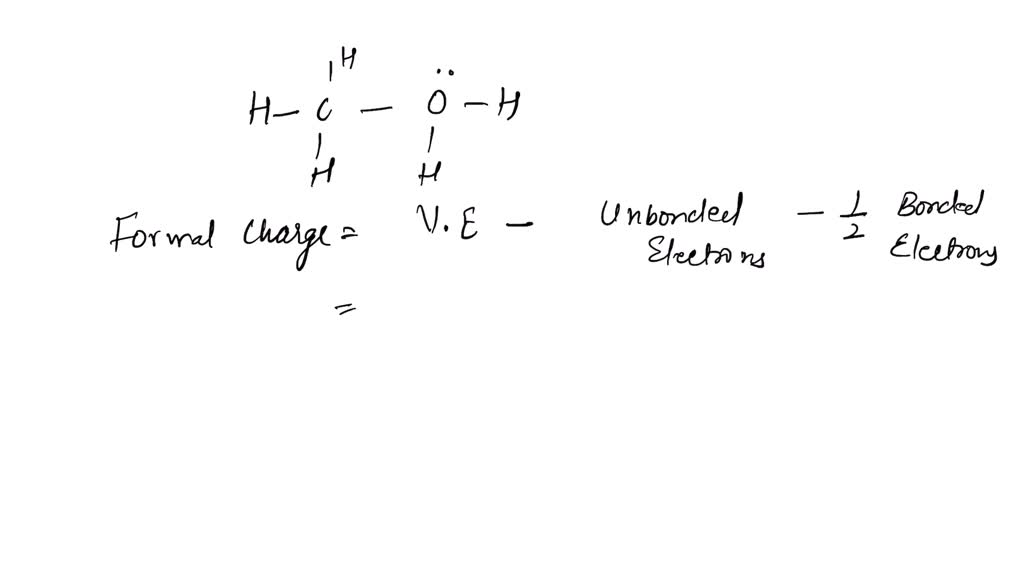 H
H - C - Ö - H
H H
Formal Charge = V.E - Unbonded Electrons - 1/2 Bonded Electrons
=